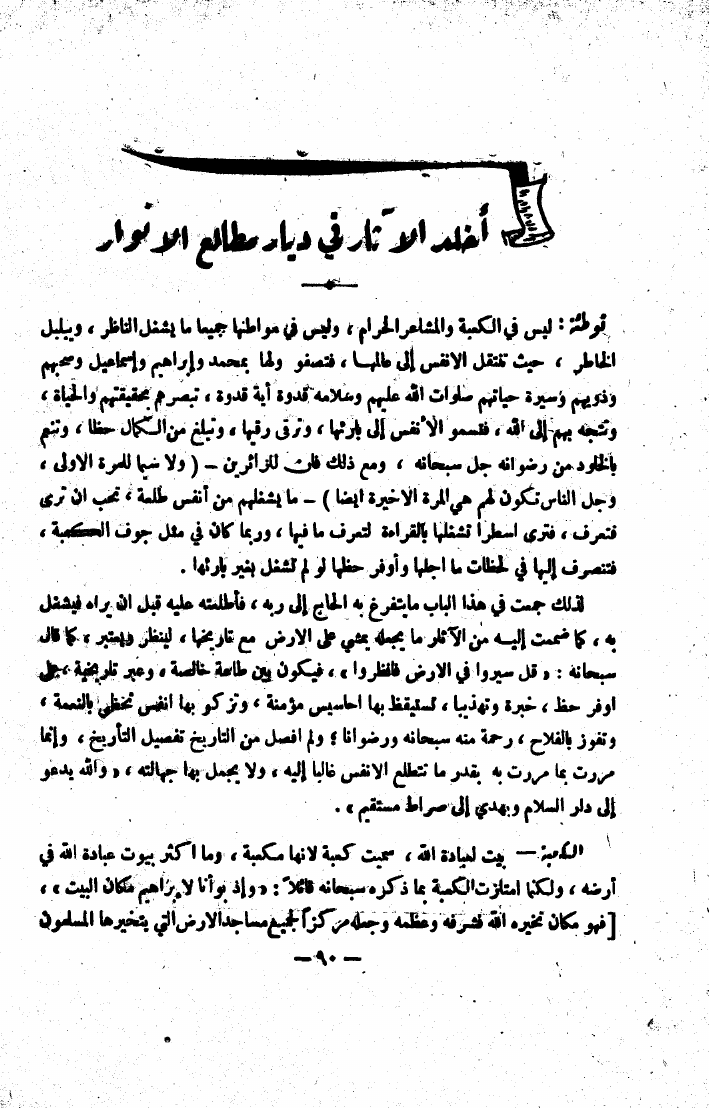 أخلد الآثار في ديار مطالع الانوار
توطئة: ليس في الكعبة والمشاعر الحرام، وليس في مواطنها جميعا ما يشغل الناظر، ويبلبل
الخاطر ، حيث تنتقل الانفس إلى عالمها ، فتصفو ولها بمحمد وإبراهيم وإسماعيل وصحبهم
وذويهم وسيرة حياتهم صلوات الله عليهم وسلامه قدوة أية قدوة ، تبصرهم بحقيقتهم والحياة ،
وتتجه بهم إلى الله ، فتسمو الأنفس إلى بارئها ، وترقى رقيها ، وتبلغ من الكمال حظا ، وتنعم
بالخلود من رضوانه جل سبحانه ، ومع ذلك فان للزائرين – ( ولا سيما للمرة الاولى ،
وجل الناس تكون لهم هي المرة الاخيرة ايضا ) – ما يشغلهم من أنفس طلعة ، تحب ان ترى
فتعرف ، فترى اسطرا تشغلها بالقراءة لتعرف ما فيها ، وربما كان في مثل جوف الكعبة ،
فتنصرف إليها في لحظات ما اجلها وأوفر حظها لو لم تشغل بغير بارئها .
لذلك جمعت في هذا الباب ما يتفرغ به الحاج إلى ربه ، فأطلعته عليه قبل ان يراه فيشغل
به ، كما ضممت إليه من الآثار ما يجعله يمشي على الارض مع تاريخها ، لينظر ويعتبر ، كما قال
سبحانه : « قل سيروا في الارض فانظروا » ، فيكون بين طاعة خالصة ، وعبر تاريخية ، على
اوفر حظ ، خبرة وتهذيبا ، تستيقظ بها احاسيس مؤمنة ، وتزكو بها انفس تحظى بالنعمة ،
وتفوز بالفلاح ، رحمة منه سبحانه ورضوانا ؛ ولم افصل من التاريخ تفصيل التأريخ ، وإنما
مررت بما مررت به بقدر ما تتطلع الانفس غالبا إليه ، ولا يجمل بها جهالته ، « والله يدعو
إلى دار السلام ويهدي إلى صراط مستقيم » .
الكعبة – بيت لعبادة الله ، سميت كعبة لانها مكعبة ، وما اكثر بيوت عبادة الله في
أرضه ، ولكنها امتازت الكعبة بما ذكره سبحانه قائلاً : « وإذ بوأنا لإبراهيم مكان البيت » ،
[فهو مكان تخيره الله فشرفه وعظمه وجعله مركزاً لجميع مساجد الارض التي يتخيرها المسلمون
– ٩٠ –